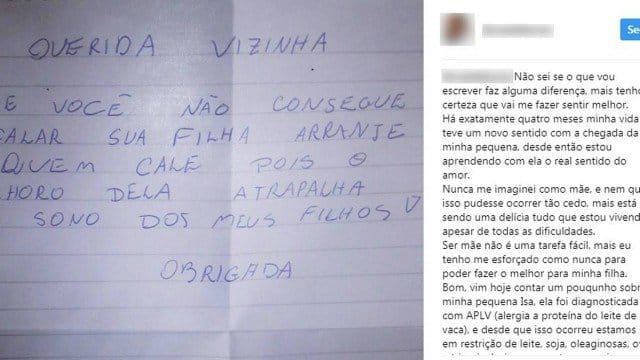 QUERIDA VIZINHA
E VOCÊ NÃO CONSEGUE
ALAR SUA FILHA ARRANJE
QUEM CALE POIS O
HORO DELA ATRAPALHA
SONO DOS MEUS FILHOS
OBRIGADA
Se
Não sei se o que vou
escrever faz alguma diferença, mais tenho
certeza que vai me fazer sentir melhor.
Há exatamente quatro meses minha vida
teve um novo sentido com a chegada da
minha pequena, desde então estou
aprendendo com ela o real sentido do
amor.
Nunca me imaginei como mãe, e nem qu
isso pudesse ocorrer tão cedo, mais está
sendo uma delícia tudo que estou vivend
apesar de todas as dificuldades.
Ser mãe não é uma tarefa fácil, mais eu
tenho me esforçado como nunca para
poder fazer o melhor para minha filha.
Bom, vim hoje contar um pouqunho sobr
minha pequena Isa, ela foi diagnosticada
com APLV (alergia a proteína do leite de
vaca), e desde que isso ocorreu estamos
em restrição de leite, soja, oleaginosas, o